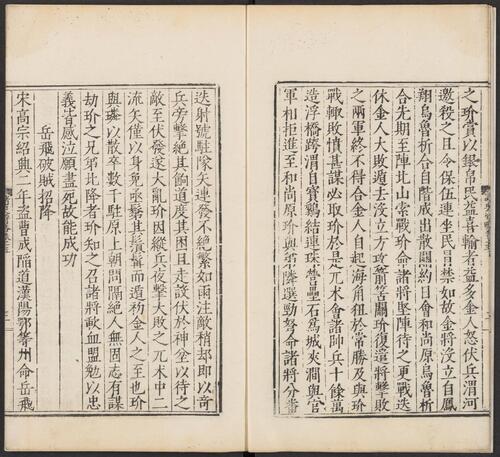 之玠賞以銀帛民益喜輸者益多金人怒伏兵渭河
邀殺之且令保伍連坐民冒禁如故金將没立自鳳
翔烏魯折合自階成出散關約日會和尚原烏魯折
合先期至陣北山索戰玠命諸將堅陣待之更戰迭
休金人大敗遁去没立方攻箭筈關玠復遣將擊敗
之兩軍終不得合金人自起海角狃於常勝及與玠
戰輒敗憤甚謀必取玠於是兀朮會諸帥兵十餘萬
造浮橋跨渭自寳鷄結連珠營壘石爲城夾澗與官
軍相拒進至和尚原玠與弟璘選勁弩命諸將分番
迭射號駐隊矢連發不絶繁如雨注敵稍却即以奇
兵旁擊絶其餉道度其困且走設伏於神坌以待之
敵至伏發遂大亂玠因縱兵夜擊大敗之兀朮中二
流矢僅以身免亟剃其鬚髯而遁初金人之至也玠
與璘以散卒數千駐原上朝問隔絶人無固志有謀
劫玠之兄弟北降者玠知之召諸將歃血盟勉以忠
義皆感泣願盡死故能成功
岳飛破賊招降
宋高宗紹興二年盜曹成陷道漢陽鄂等州命岳飛